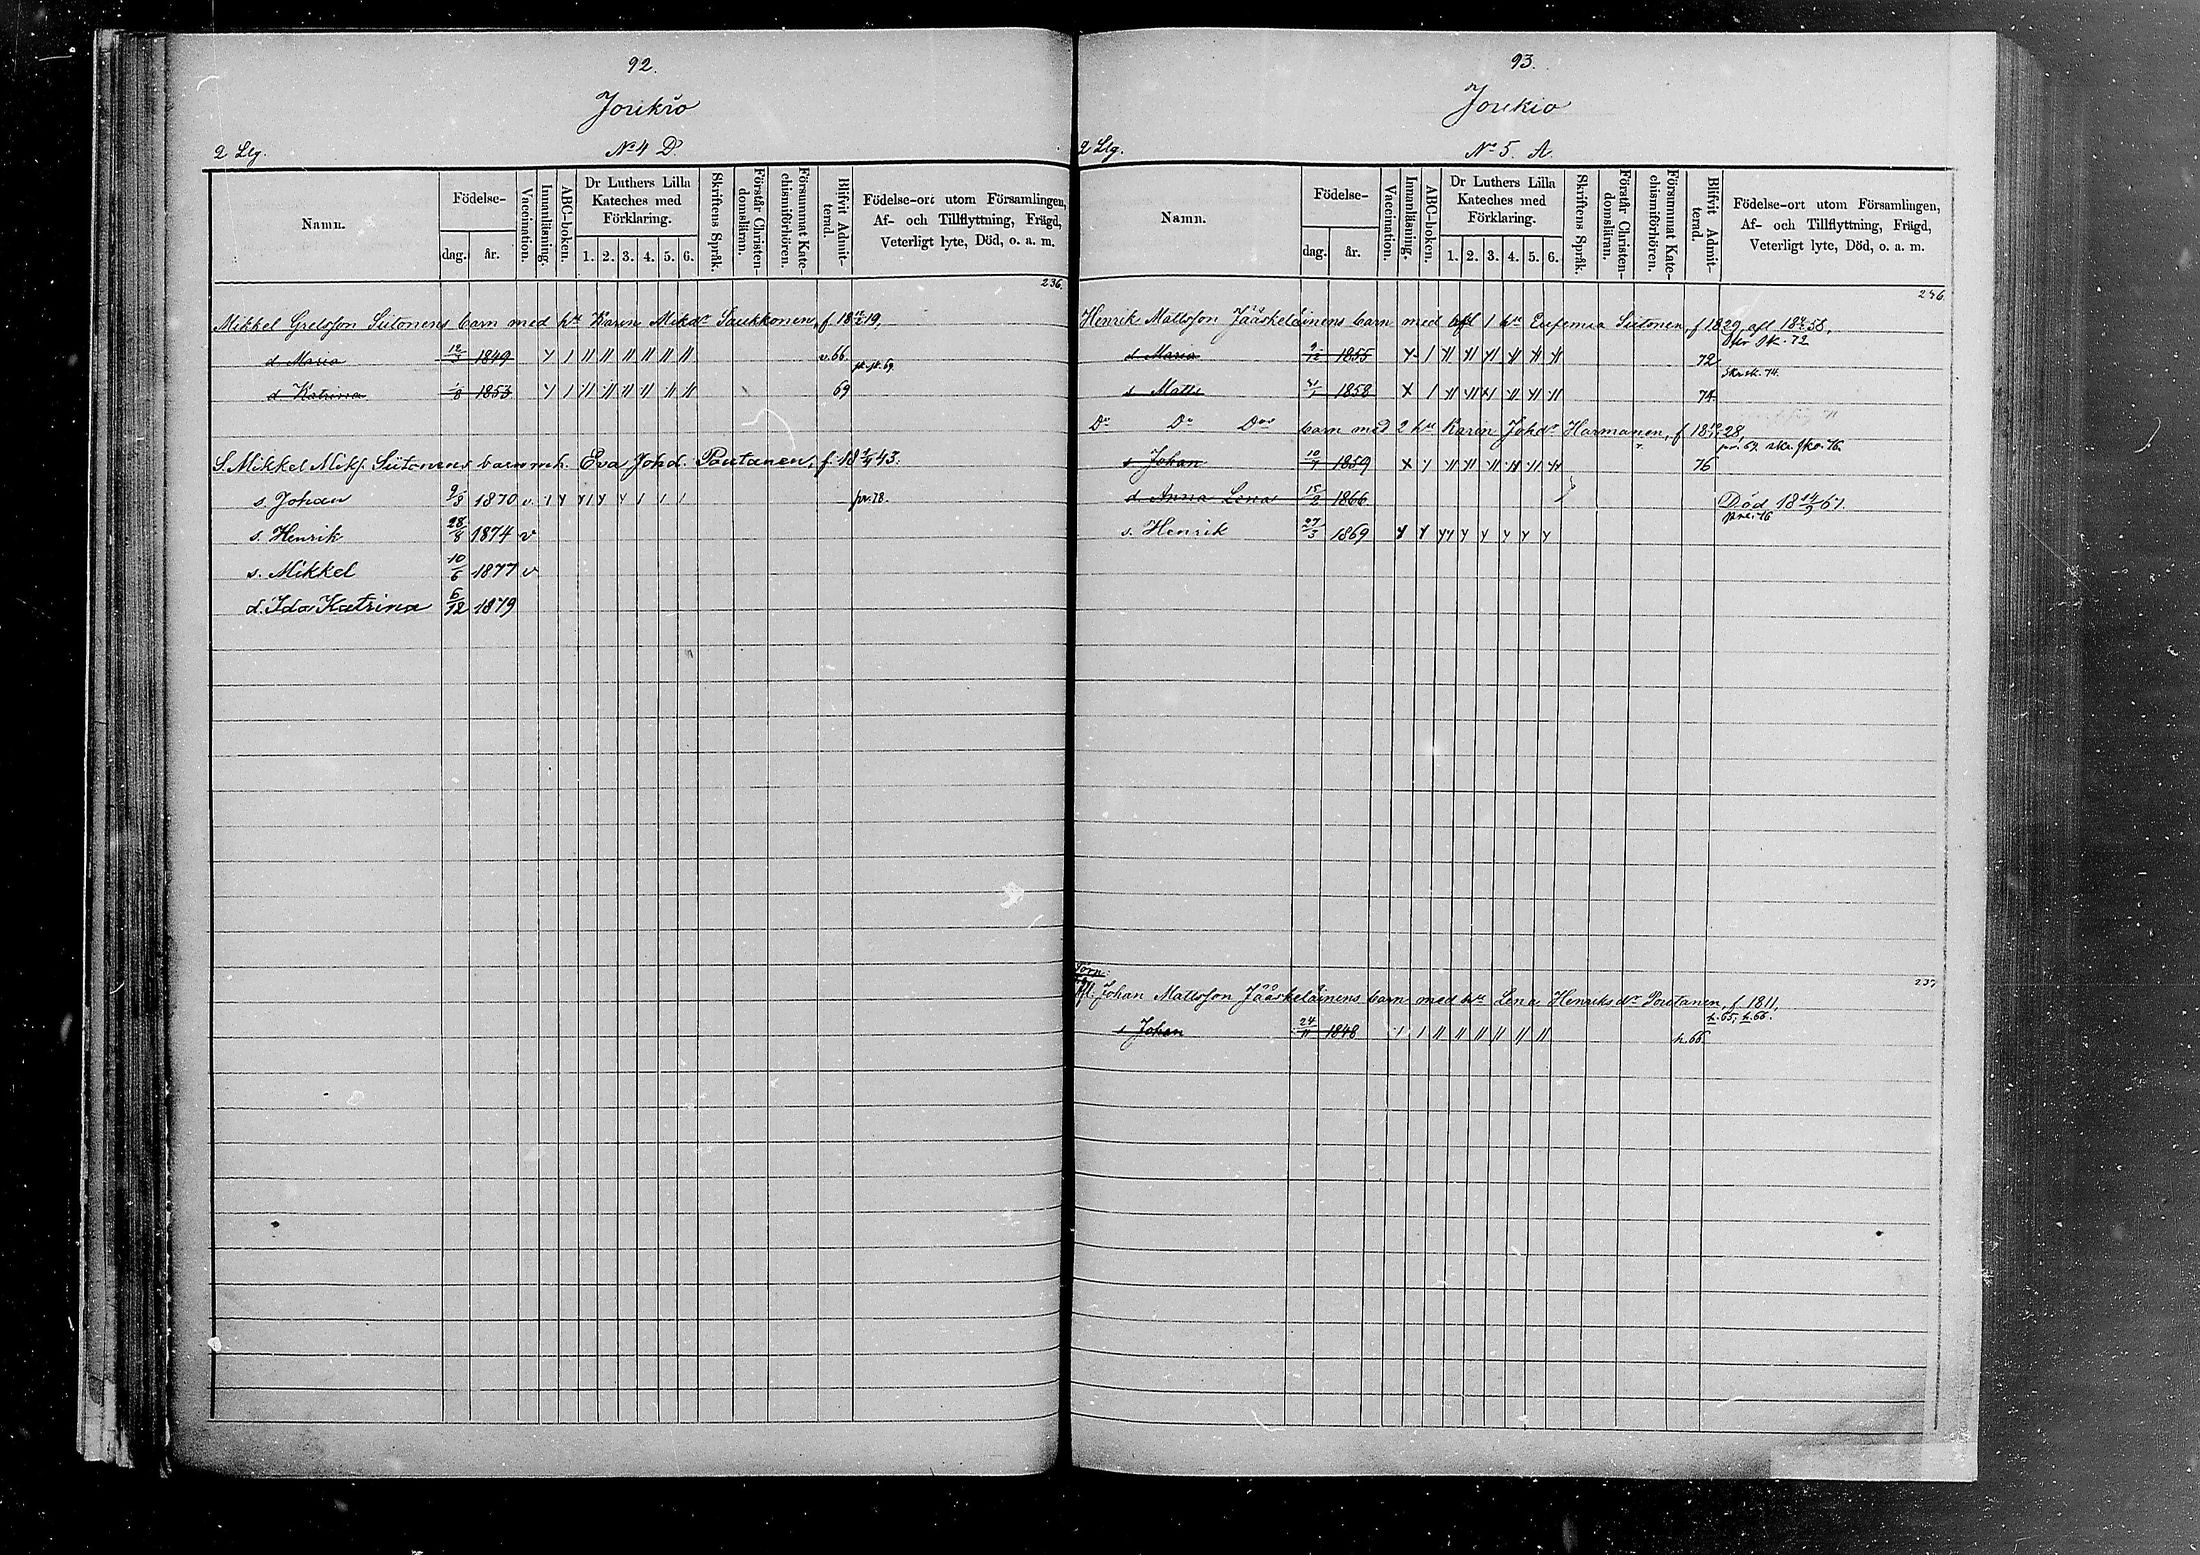 92.
Jorikio
2 Llg. No 4 D.
Namn. Födelse- dag. år. Vaccination. Innanläsning. ABC-boken. Dr Luthers Lilla Kateches med Förklaring. 1. 2. 3. 4. 5. 6. Skriftens Språk. Förstår Christendomsläran. Försummat Katechismiförhören. Blifvit Admitterad. Födelse-ort utom Församlingen, Af- och Tillflyttning, Frägd, Veterligt lyte, Död, o. a. m.
236.
Mikkel Grelsson Siitonens barn med hu Karin Mickdr Saukkonen, f 18 19,
d Maria 12/3 1849 v. 66
d Katrina 1853 69
S. Mikkel Mikf. Siitonens barn m h. Eva Joh d. Poutanen, f. 18 43.
s. Johan 9/3 1870 v. pr. 78.
s. Henrik 28/8 1874 v
s. Mikkel 10/6 1877 v
d. Ida Katrina 6/12 1879
93.
Jorikio
2 Llg. No 5. A.
Namn. Födelse- dag. år. Vaccination. Innanläsning. ABC-boken. Dr Luthers Lilla Kateches med Förklaring. 1. 2. 3. 4. 5. 6. Skriftens Språk. Förstår Christendomsläran. Försummat Katechismiförhören. Blifvit Admitterad. Födelse-ort utom Församlingen, Af- och Tillflyttning, Frägd, Veterligt lyte, Död, o. a. m.
246.
Henrik Mattsson Jääskeläinens barn med afl 1 hu Eufemia Siitonen, f 1829, afl 18 58,
d Maria 9/12 1855 72
s Matts 1858 74.
Do Do Dos barn med 2 hu Karin Johdr Harmanen, f 18 28,
s Johan 1859 76
d Anna Lena 15/2 1866 Död 18 67.
s. Henrik 27/3 1869
237
Torp.
Afl. Johan Mattsson Jääskeläinens barn med hu Lena Henriksdr Poutanen, f. 1811,
h. 65, h. 66.
s Johan 24/11 1848 h. 66.